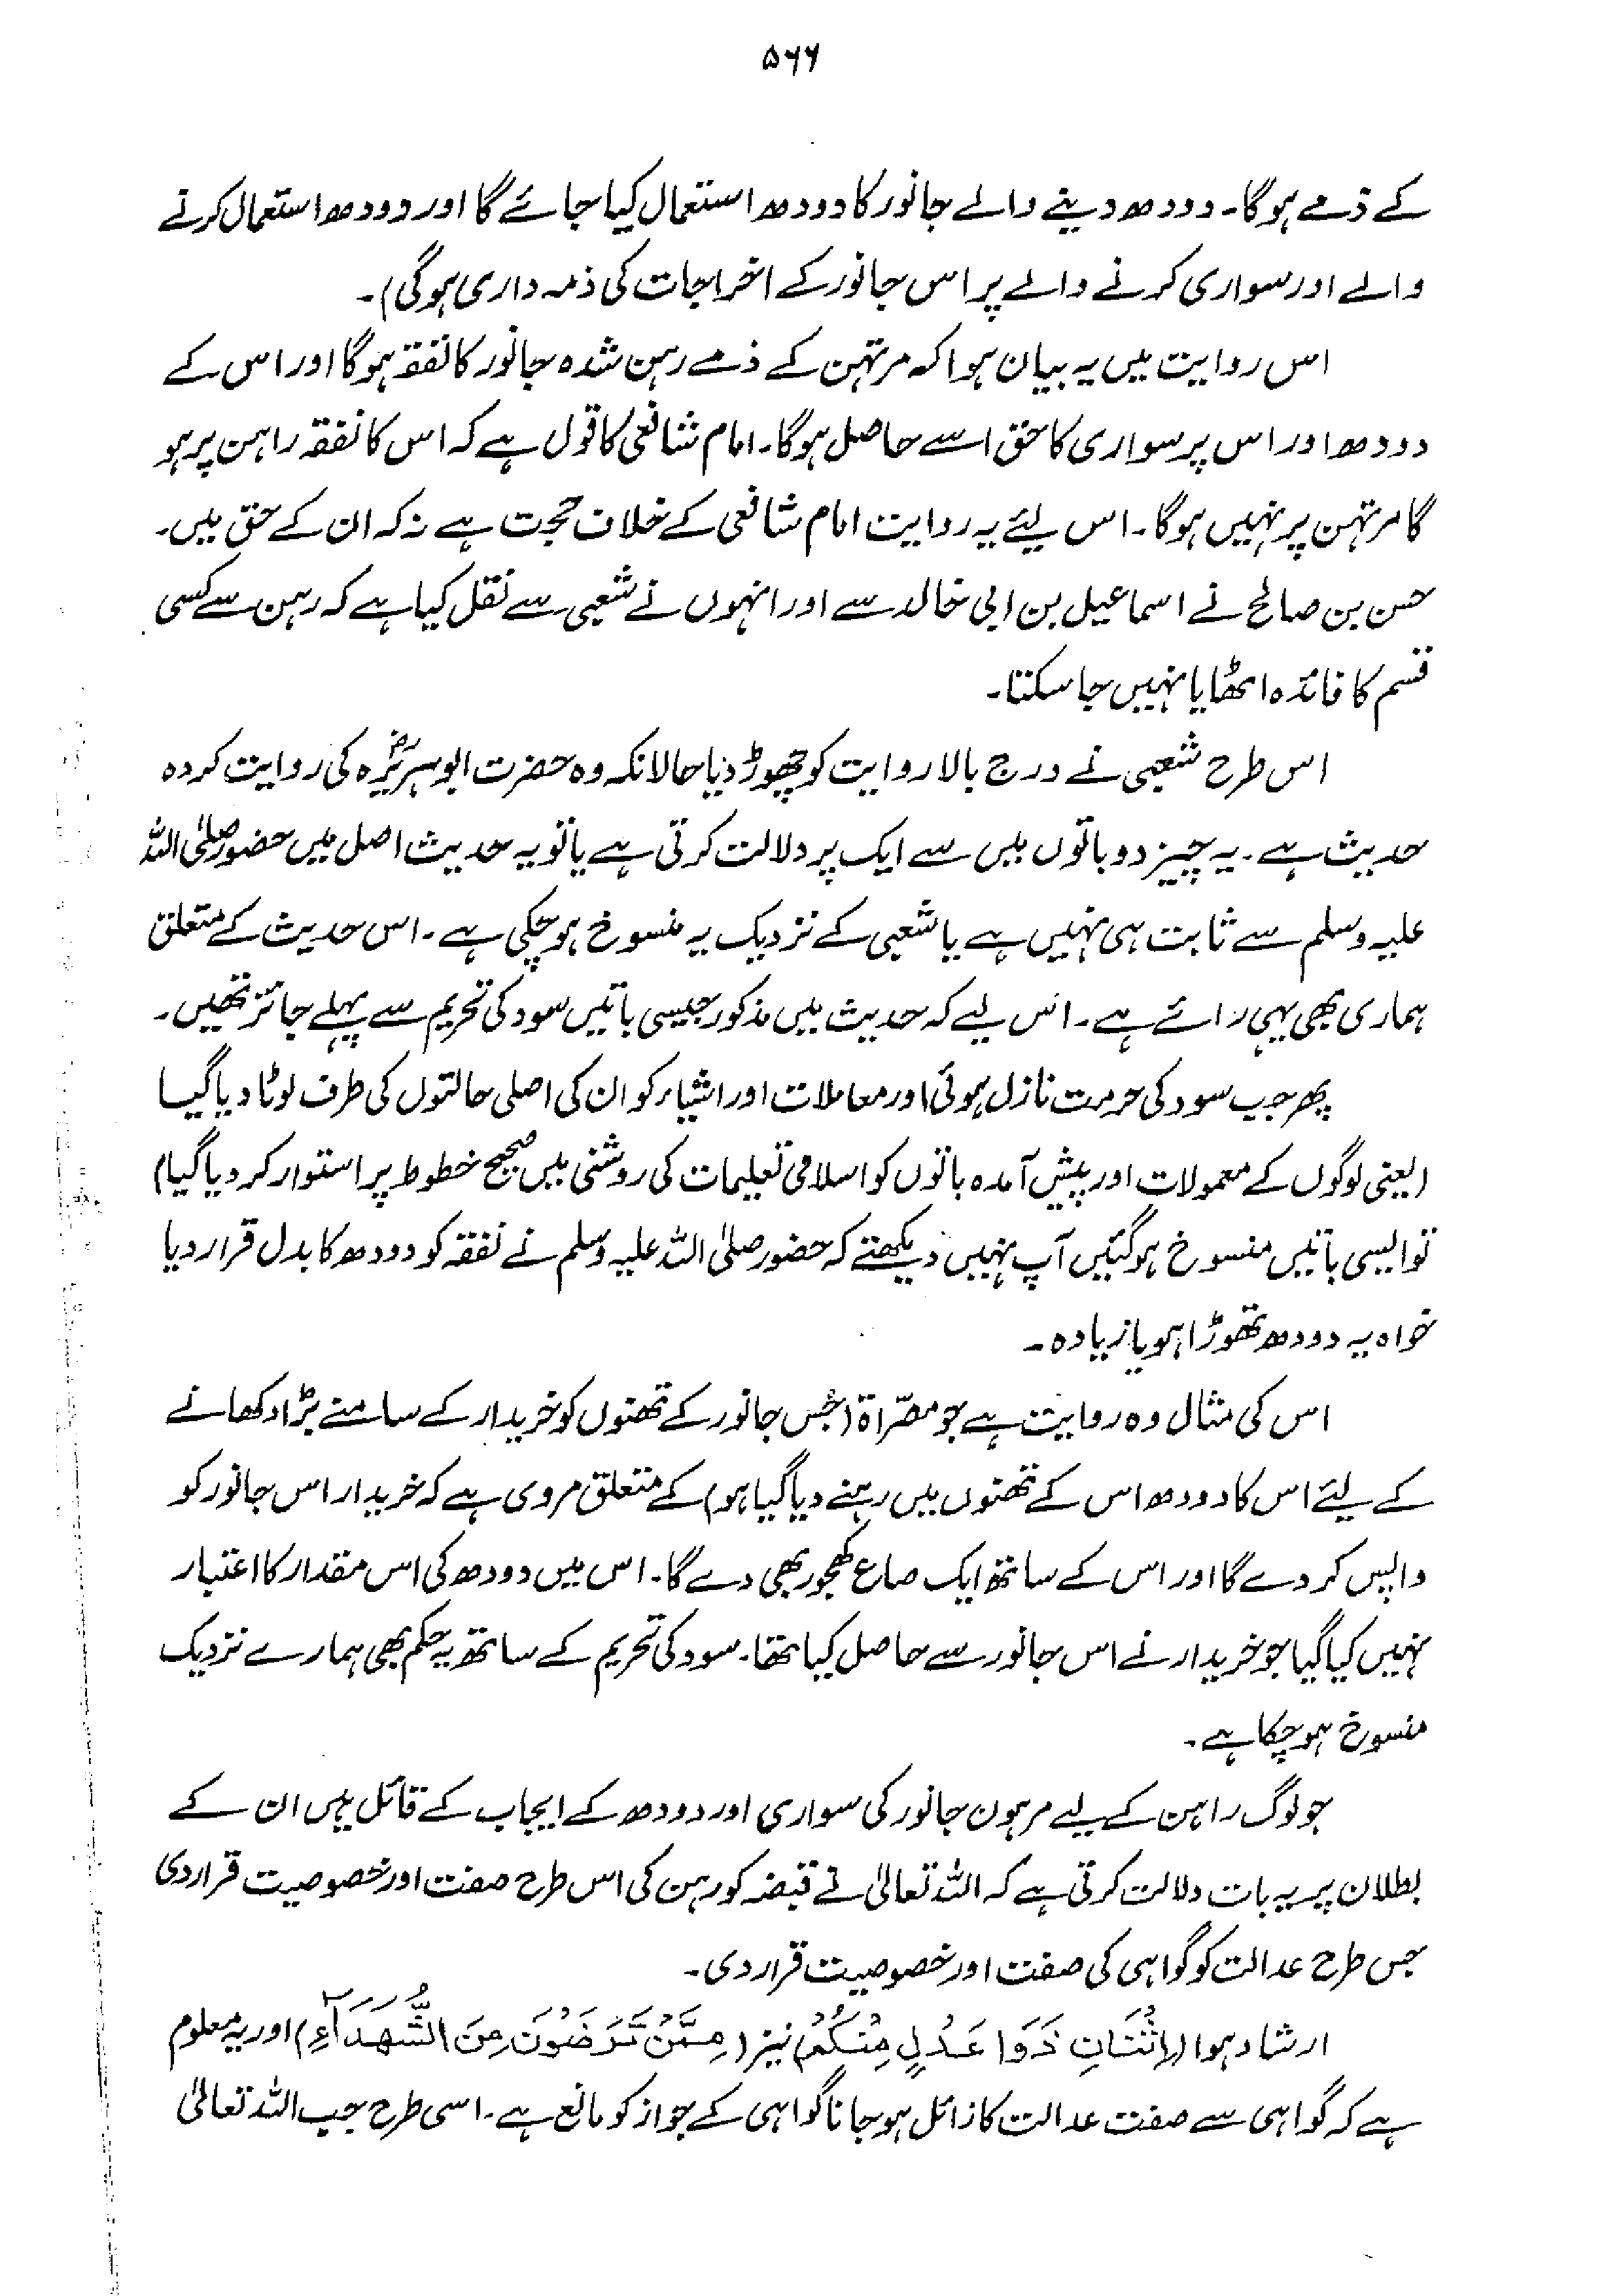 ۵۶۶
کے ذمے ہوگا۔ دودھ دینے والے جانور کا دودھ استعمال کیا جائے گا اور دودھ استعمال کرنے
والے اور سواری کرنے والے پر اس جانور کے اخراجات کی ذمہ داری ہوگی)۔
اس روایت میں یہ بیان ہوا کہ مرتہن کے ذمے رہن شدہ جانور کا نفقہ ہوگا اور اس کے
دودھ اور اس پر سواری کا حق اسے حاصل ہوگا۔ امام شافعی کا قول ہے کہ اس کا نفقہ راہن پر ہو
گا مرتہن پر نہیں ہوگا۔ اس لیئے یہ روایت امام شافعی کے خلاف حجت ہے نہ کہ ان کے حق میں۔
حسن بن صالح نے اسماعیل بن ابی خالد سے اور انہوں نے شعبی سے نقل کیا ہے کہ رہن سے کسی
قسم کا فائدہ اٹھایا نہیں جا سکتا۔
اس طرح شعبی نے درج بالا روایت کو چھوڑ دیا حالانکہ وہ حضرت ابوہریرہؓ کی روایت کردہ
حدیث ہے۔ یہ چیز دو باتوں میں سے ایک پر دلالت کرتی ہے یا تو یہ حدیث اصل میں حضور صلی اللہ
علیہ وسلم سے ثابت ہی نہیں ہے یا شعبی کے نزدیک یہ منسوخ ہو چکی ہے۔ اس حدیث کے متعلق
ہماری بھی یہی رائے ہے۔ اس لیے کہ حدیث میں مذکور جیسی باتیں سود کی تحریم سے پہلے جائز تھیں۔
پھر جب سود کی حرمت نازل ہوئی اور معاملات اور اشیاء کو ان کی اصلی حالتوں کی طرف لوٹا دیا گیا
(یعنی لوگوں کے معمولات اور پیش آمدہ باتوں کو اسلامی تعلیمات کی روشنی میں صحیح خطوط پر استوار کر دیا گیا)
تو ایسی باتیں منسوخ ہو گئیں آپ نہیں دیکھتے کہ حضور صلی اللہ علیہ وسلم نے نفقہ کو دودھ کا بدل قرار دیا
خواہ یہ دودھ تھوڑا ہو یا زیادہ۔
اس کی مثال وہ روایت ہے جو مصرّاۃ (جس جانور کے تھنوں کو خریدار کے سامنے بڑا دکھانے
کے لیئے اس کا دودھ اس کے تھنوں میں رہنے دیا گیا ہو) کے متعلق مروی ہے کہ خریدار اس جانور کو
واپس کر دے گا اور اس کے ساتھ ایک صاع کھجور بھی دے گا۔ اس میں دودھ کی اس مقدار کا اعتبار
نہیں کیا گیا جو خریدار نے اس جانور سے حاصل کیا تھا۔ سود کی تحریم کے ساتھ یہ حکم بھی ہمارے نزدیک
منسوخ ہو چکا ہے۔
جو لوگ راہن کے لیے مرہون جانور کی سواری اور دودھ کے ایجاب کے قائل ہیں ان کے
بطلان پر یہ بات دلالت کرتی ہے کہ اللہ تعالیٰ نے قبضہ کو رہن کی اس طرح صفت اور خصوصیت قرار دی
جس طرح عدالت کو گواہی کی صفت اور خصوصیت قرار دی۔
ارشاد ہوا (اِثْنَانِ ذَوَا عَدْلٍ مِنْكُمْ) نیز (مِمَّنْ تَرْضَوْنَ مِنَ الشُّهَدَآءِ) اور یہ معلوم
ہے کہ گواہی سے صفت عدالت کا زائل ہو جانا گواہی کے جواز کو مانع ہے۔ اسی طرح جب اللہ تعالیٰ